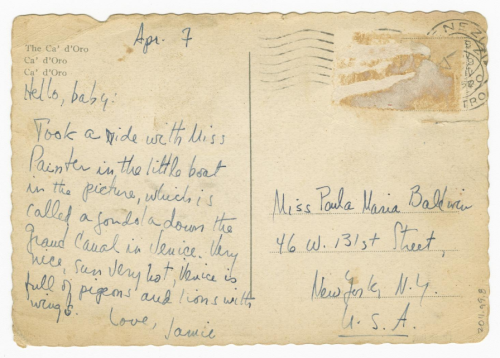 Apr. 7
The Ca' d'Oro
Ca' d'Oro
Ca' d'Oro
Hello, baby:
Took a ride with Miss
Painter in the little boat
in the picture, which is
called a gondola down the
Grand Canal in Venice. Very
nice, sun very hot, Venice is
full of pigeons and lions with
wings.
Love, Jamie
Miss Paula Maria Baldwin
46 W. 131st Street,
New York, N.Y.
U. S. A.